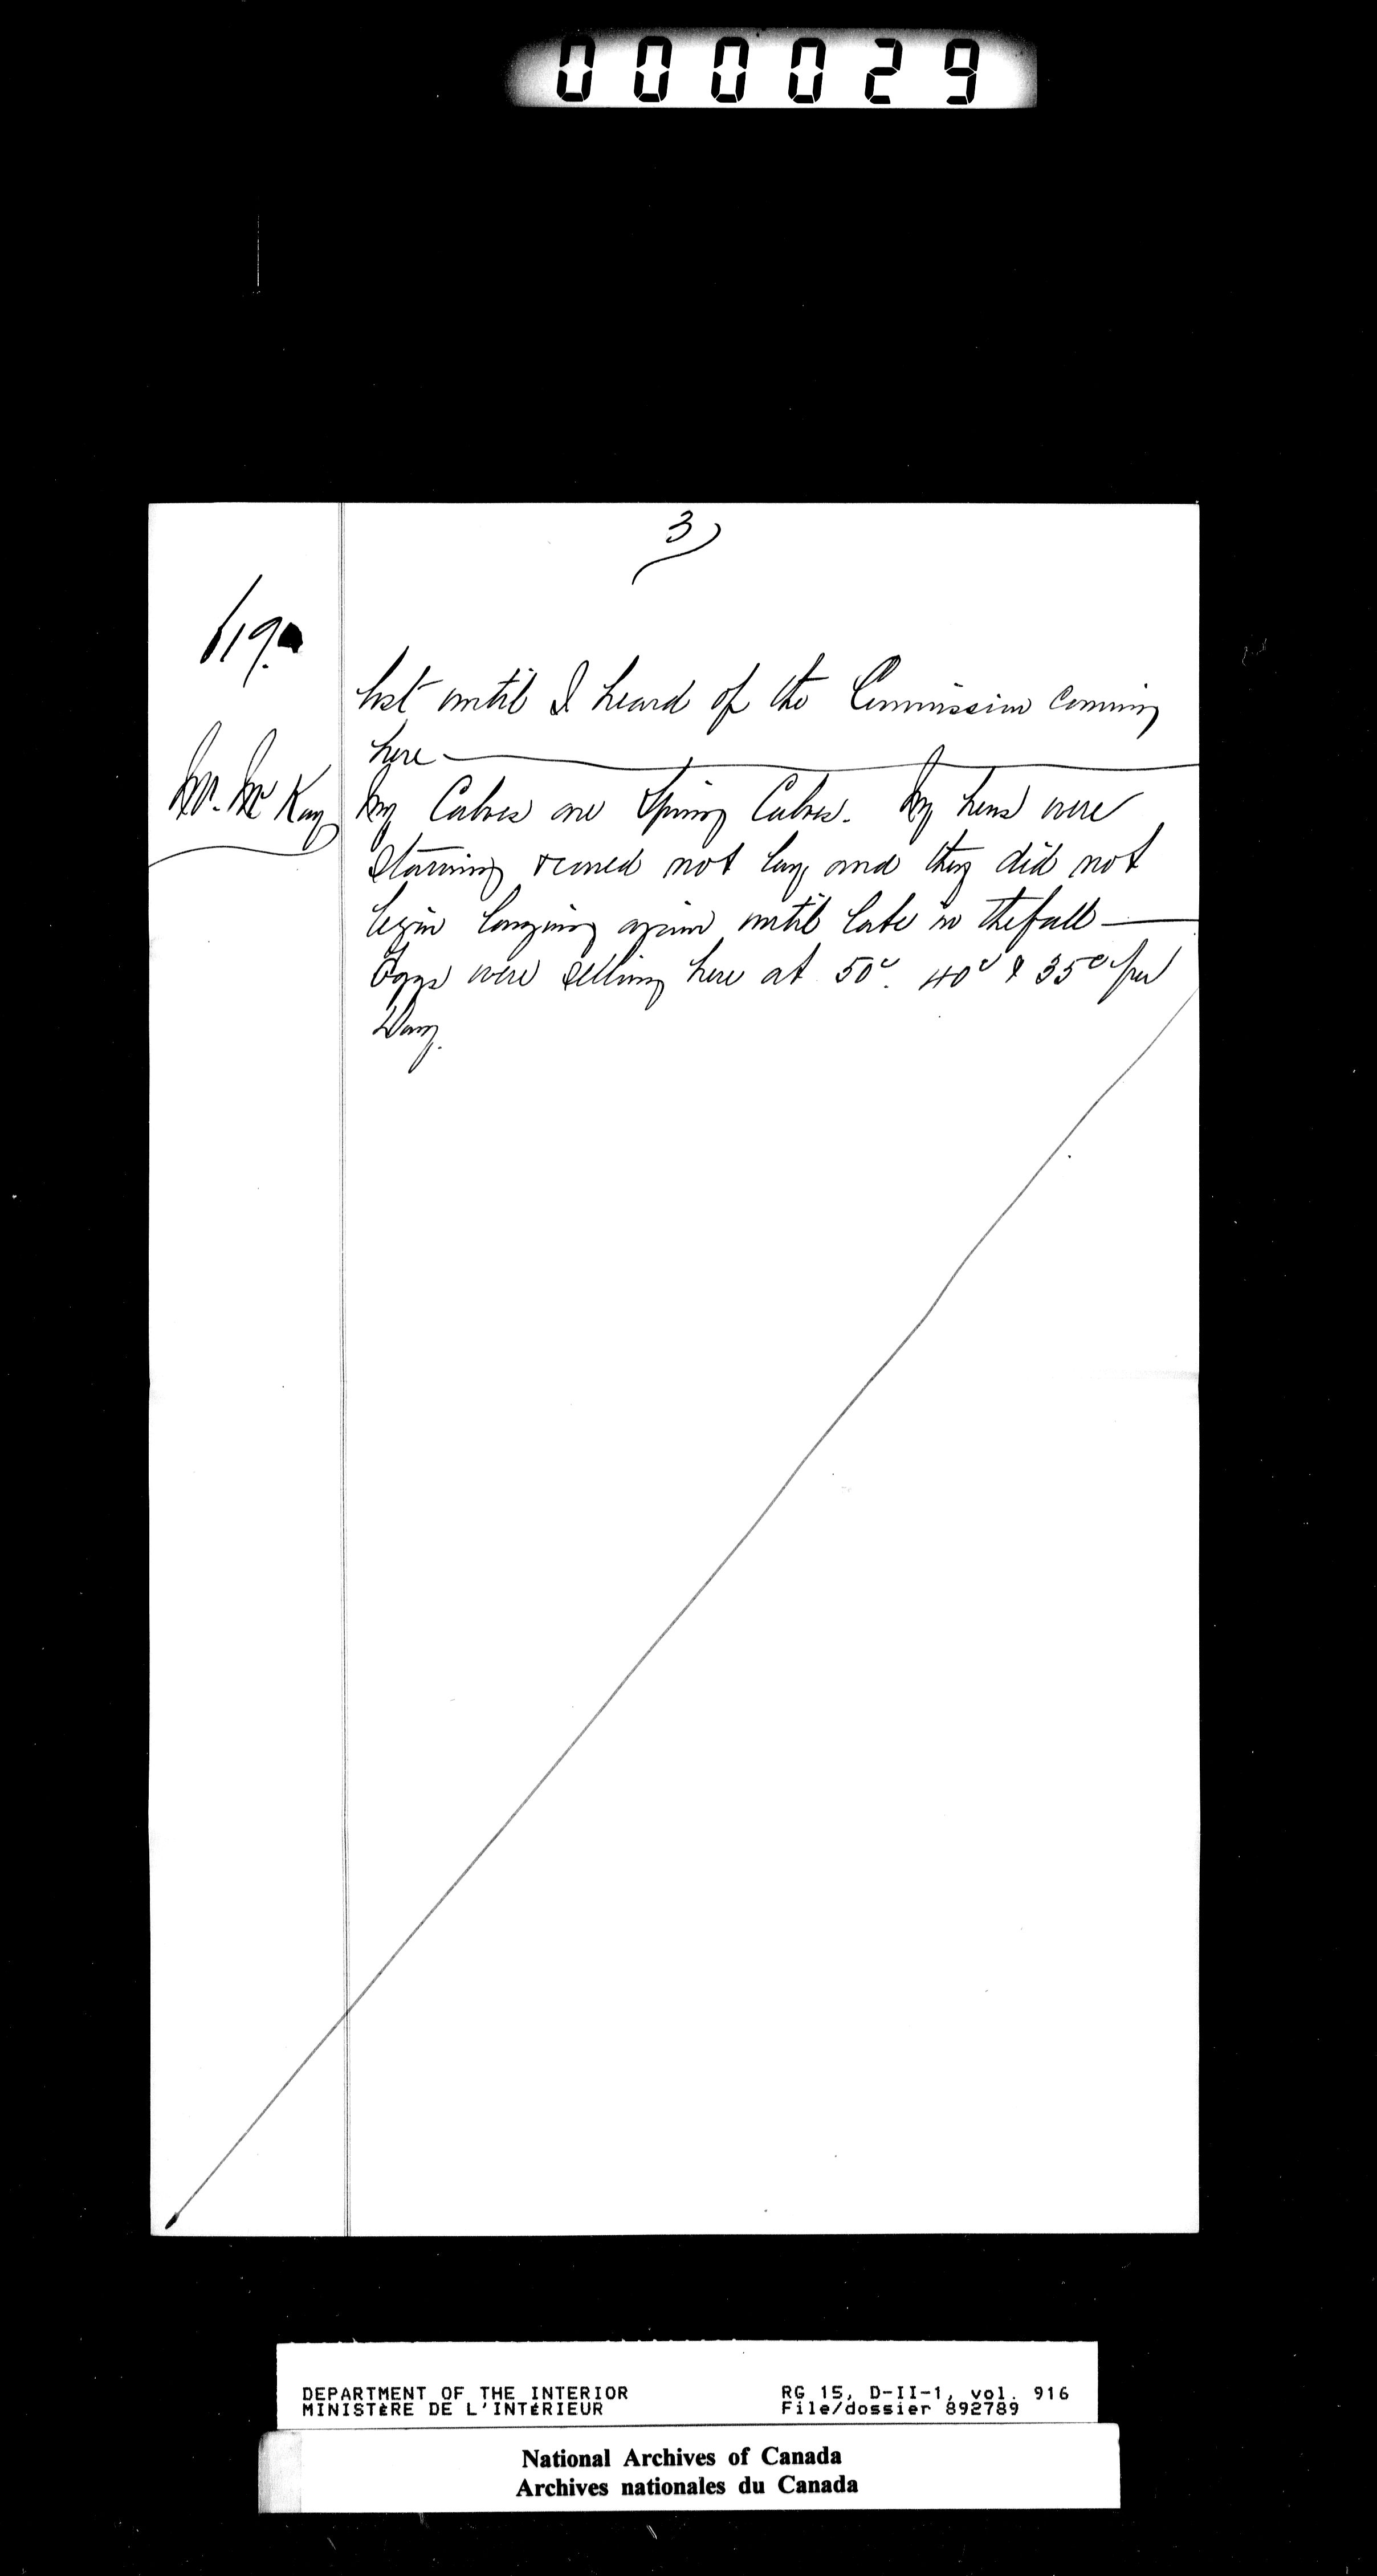 000029
3)
619.
lost until I heard of the Commission coming
here
Mr. McKay
My Calves are Spring Calves. My hens were
starving & could not lay, and they did not
begin laying again until late in the fall —
Eggs were selling here at 50c. 40c & 35c per
Doz.
DEPARTMENT OF THE INTERIOR
MINISTÈRE DE L'INTÉRIEUR
RG 15, D-II-1, vol. 916
File/dossier 892789
National Archives of Canada
Archives nationales du Canada